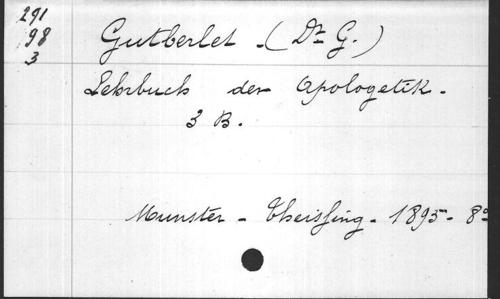 291
98
3
Gutberlet - (Dr G.)
Lehrbuch der Apologetik -
3 B.
Munster - Theissing - 1895 - 8º